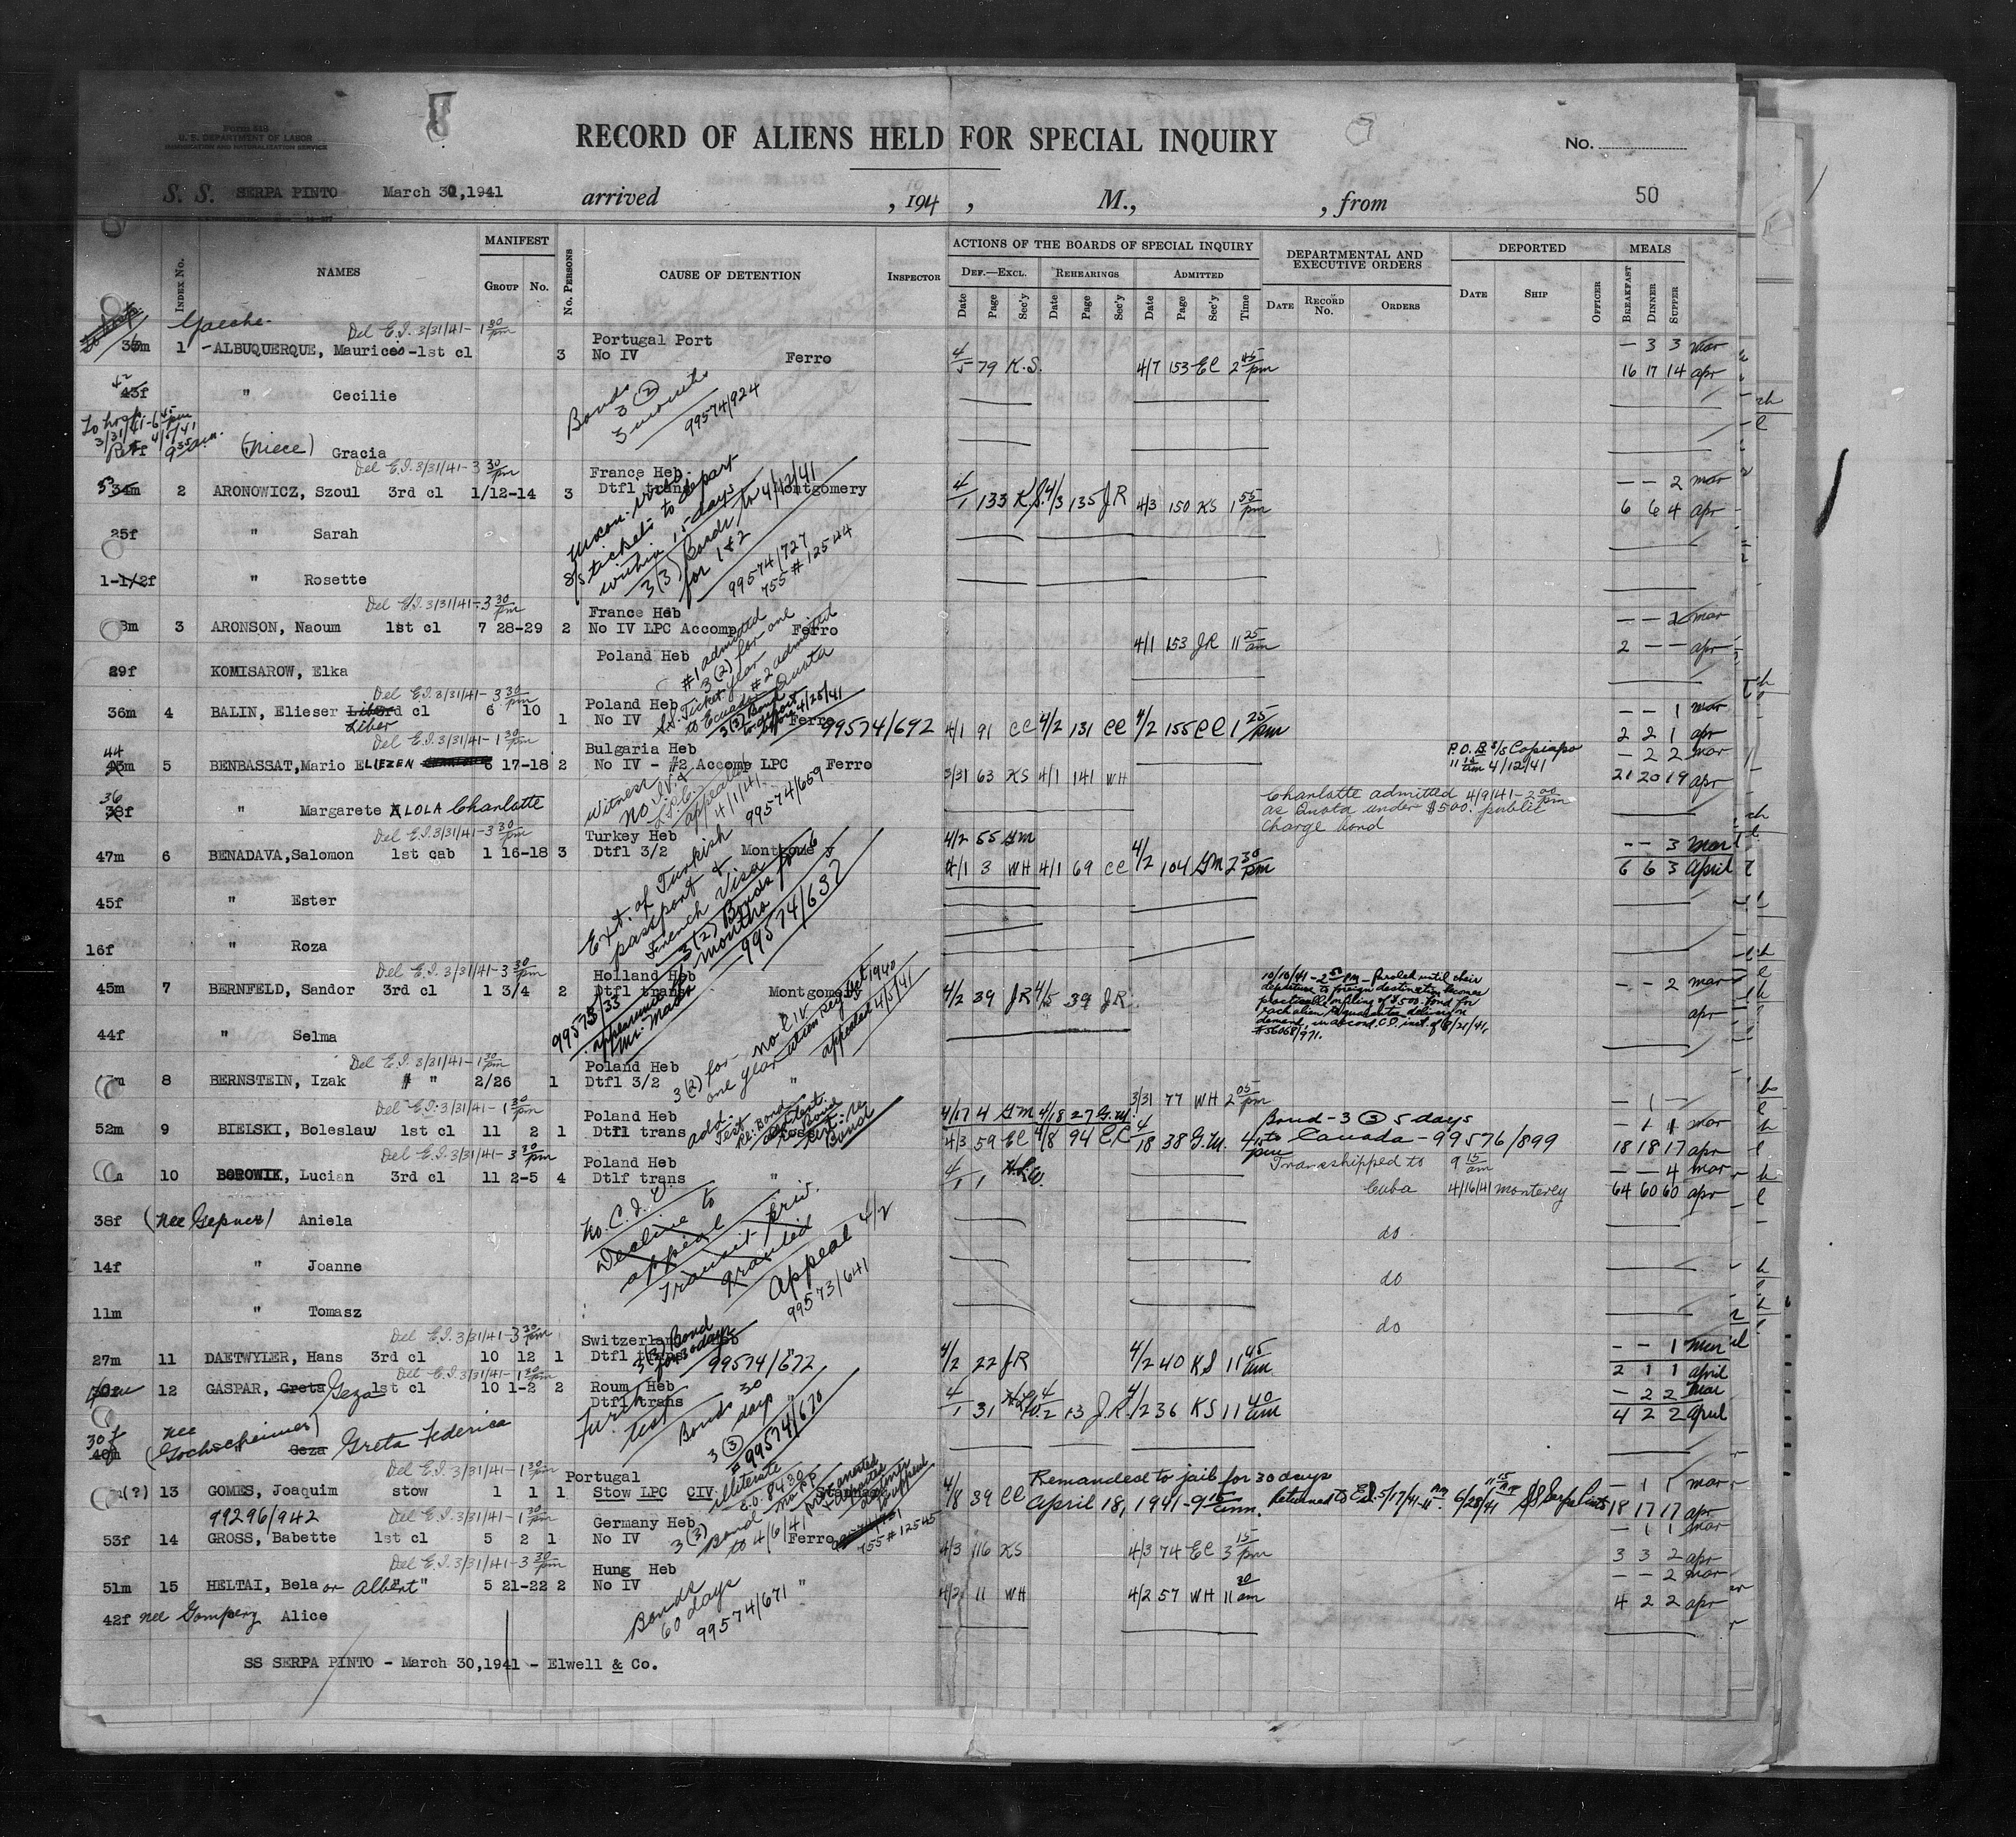 Form 519
U. S. DEPARTMENT OF LABOR
IMMIGRATION AND NATURALIZATION SERVICE
RECORD OF ALIENS HELD FOR SPECIAL INQUIRY
No.
S. S. SERPA PINTO March 30,1941 arrived , 194 , M., , from 50
INDEX No. NAMES MANIFEST GROUP NO. No. PERSONS CAUSE OF DETENTION INSPECTOR
ACTIONS OF THE BOARDS OF SPECIAL INQUIRY
DEF.—EXCL. REHEARINGS ADMITTED
Date Page Sec'y Date Page Sec'y Date Page Sec'y Time
DEPARTMENTAL AND EXECUTIVE ORDERS
DATE RECORD No. ORDERS
DEPORTED
DATE SHIP OFFICER
MEALS
BREAKFAST DINNER SUPPER
Del E.I. 3/31/41- 1 30 pm
1 -ALBUQUERQUE, Maurice -1st cl 3 Portugal Port
No IV Ferro 4/5 79 K.S. 4/7 153 EC 2 45 pm
— 3 3 mar
16 17 14 apr
42
43f " Cecilie
Bonds 3 (2) 3 months
99574/924
To hosp. 3/31/41-6 45 pm
Ret 4/1/41 9 35 a.m.
(niece) Gracia
Del E.I. 3/31/41- 3 30 pm
34m 2 ARONOWICZ, Szoul 3rd cl 1/12-14 3 France Heb
Dtfl trans Montgomery 4/1 133 K.S. 4/3 135 JR 4/3 150 KS 1 55 pm
— — 2 mar
6 6 4 apr
s/s tickets to depart within 15 days
3(3) Bonds to 4/12/41 for 1 & 2
99574/727
755 # 12544
25f " Sarah
1-1/2f " Rosette
Del E.I. 3/31/41- 3 30 pm
3 ARONSON, Naoum 1st cl 7 28-29 2 France Heb
No IV LPC Accomp Ferro 4/1 153 JR 11 25 am
— — 2 mar
2 — — apr
29f KOMISAROW, Elka Poland Heb
#1 admitted 3(2) for one year
S.S. Ticket to Ecuador #2 admitted Quota
Del E.I. 3/31/41- 3 30 pm
36m 4 BALIN, Elieser Liber 3rd cl 6 10 1 Poland Heb
No IV Ferro 99574/692 4/1 91 CC 4/2 131 CC 4/2 155 CC 1 25 pm
3(3) Bond to depart before 4/25/41
— — 1 mar
2 2 1 apr
Del E.I. 3/31/41- 1 30 pm
44
5 BENBASSAT,Mario ELIEZEN 6 17-18 2 Bulgaria Heb
No IV - #2 Accomp LPC Ferro 3/31 63 KS 4/1 141 WH
P.O.B s/s Copiapo
4/12/41
— 2 2 mar
21 20 19 apr
36
38f " Margarete LOLA Charlotte
Witness No IV & LPC appealed 4/1/41
99574/659
Charlotte admitted 4/9/41-2 00 pm
as Quota under $500. public
Charge bond
Del E.I. 3/31/41- 3 30 pm
47m 6 BENADAVA,Salomon 1st cab 1 16-18 3 Turkey Heb
Dtfl 3/2 4/2 55 GM
4/1 3 WH 4/1 69 CC 4/2 104 GM 2 30 pm
— — 3 Mar
6 6 3 April
Ext. of Turkish passport & French Visa
3(2) Bonds for 6 months
99574/632
45f " Ester
16f " Roza
Del E.I. 3/31/41- 3 30 pm
45m 7 BERNFELD, Sandor 3rd cl 1 3/4 2 Holland Heb
Dtfl trans Montgomery 4/2 39 JR 4/5 39 JR
10/10/41 - Paroled until their
departure to foreign destination becomes
practicable on filing of $500. bond for
each alien
#56068/971.
— — 2 mar
apr
44f " Selma
appealed 4/5/41
Del E.I. 3/31/41- 1 30 pm
8 BERNSTEIN, Izak " " 2/26 1 Poland Heb
Dtfl 3/2 " 3/31 77 WH 2 05 pm
3(2) for one year
— 1 —
Del E.I. 3/31/41- 1 30 pm
52m 9 BIELSKI, Boleslaw 1st cl 11 2 1 Poland Heb
Dtfl trans 4/17 4 GM 4/18 27 G.M.
4/3 59 EC 4/8 94 CR 4/18 38 G.M. 4 pm
Bond - 3 (3) 5 days
to Canada - 99576/899
— 1 1 mar
18 18 17 apr
Del E.I. 3/31/41- 3 30 pm
10 BOROWIK, Lucian 3rd cl 11 2-5 4 Poland Heb
Dtlf trans " 4/1 1
Transshipped to Cuba 9 15 am
4/16/41 Monterey
— — 4 mar
64 60 60 apr
38f (nee Gepner) Aniela do
14f " Joanne do
11m " Tomasz do
Decline to appeal
Transit priv. granted
Appeal 4/2
99573/641
Del E.I. 3/31/41- 3 30 pm
27m 11 DAETWYLER, Hans 3rd cl 10 12 1 Switzerland
Dtfl trans 3(3) Bond for 30 days 99574/672 4/2 22 JR 4/2 40 KS 11 45 am
— — 1 Mar
2 1 1 april
Del E.I. 3/31/41- 1 30 pm
12 GASPAR, Greta Geza 1st cl 10 1-2 2 Roum Heb
Dtfl trans " 4/1 31 4/2 13 JR 4/2 36 KS 11 40 am
— 2 2 Mar
4 2 2 April
Further test
Bonds 30 days 3 (3)
#99574/670
30f
nee
" Geza Greta Federica
Del E.I. 3/31/41- 1 30 pm
(?) 13 GOMES, Joaquim stow 1 1 1 Portugal
Stow LPC CIV 4/8 39 CC
illiterate
Remanded to jail for 30 days
April 18, 1941 - 9 15 am. Returned to E.I. 5/17/41- 6/28/41 SS Serpa Pinto
— 1 1 mar
18 17 17 apr
99296/942
Del E.I. 3/31/41- 1 30 pm
53f 14 GROSS, Babette 1st cl 5 2 1 Germany Heb
No IV Ferro 4/3 116 KS 4/3 74 EC 3 15 pm
3(3) Bond to 4/6/41
755 # 12545
— 1 1 mar
3 3 2 apr
Del E.I. 3/31/41- 3 30 pm
51m 15 HELTAI, Bela or Albert " 5 21-22 2 Hung Heb
No IV " 4/2 11 WH 4/2 57 WH 11 30 am
— — 2 mar
4 2 2 apr
42f nee Gomperz Alice
Bonds 60 days
99574/671
SS SERPA PINTO - March 30,1941 - Elwell & Co.